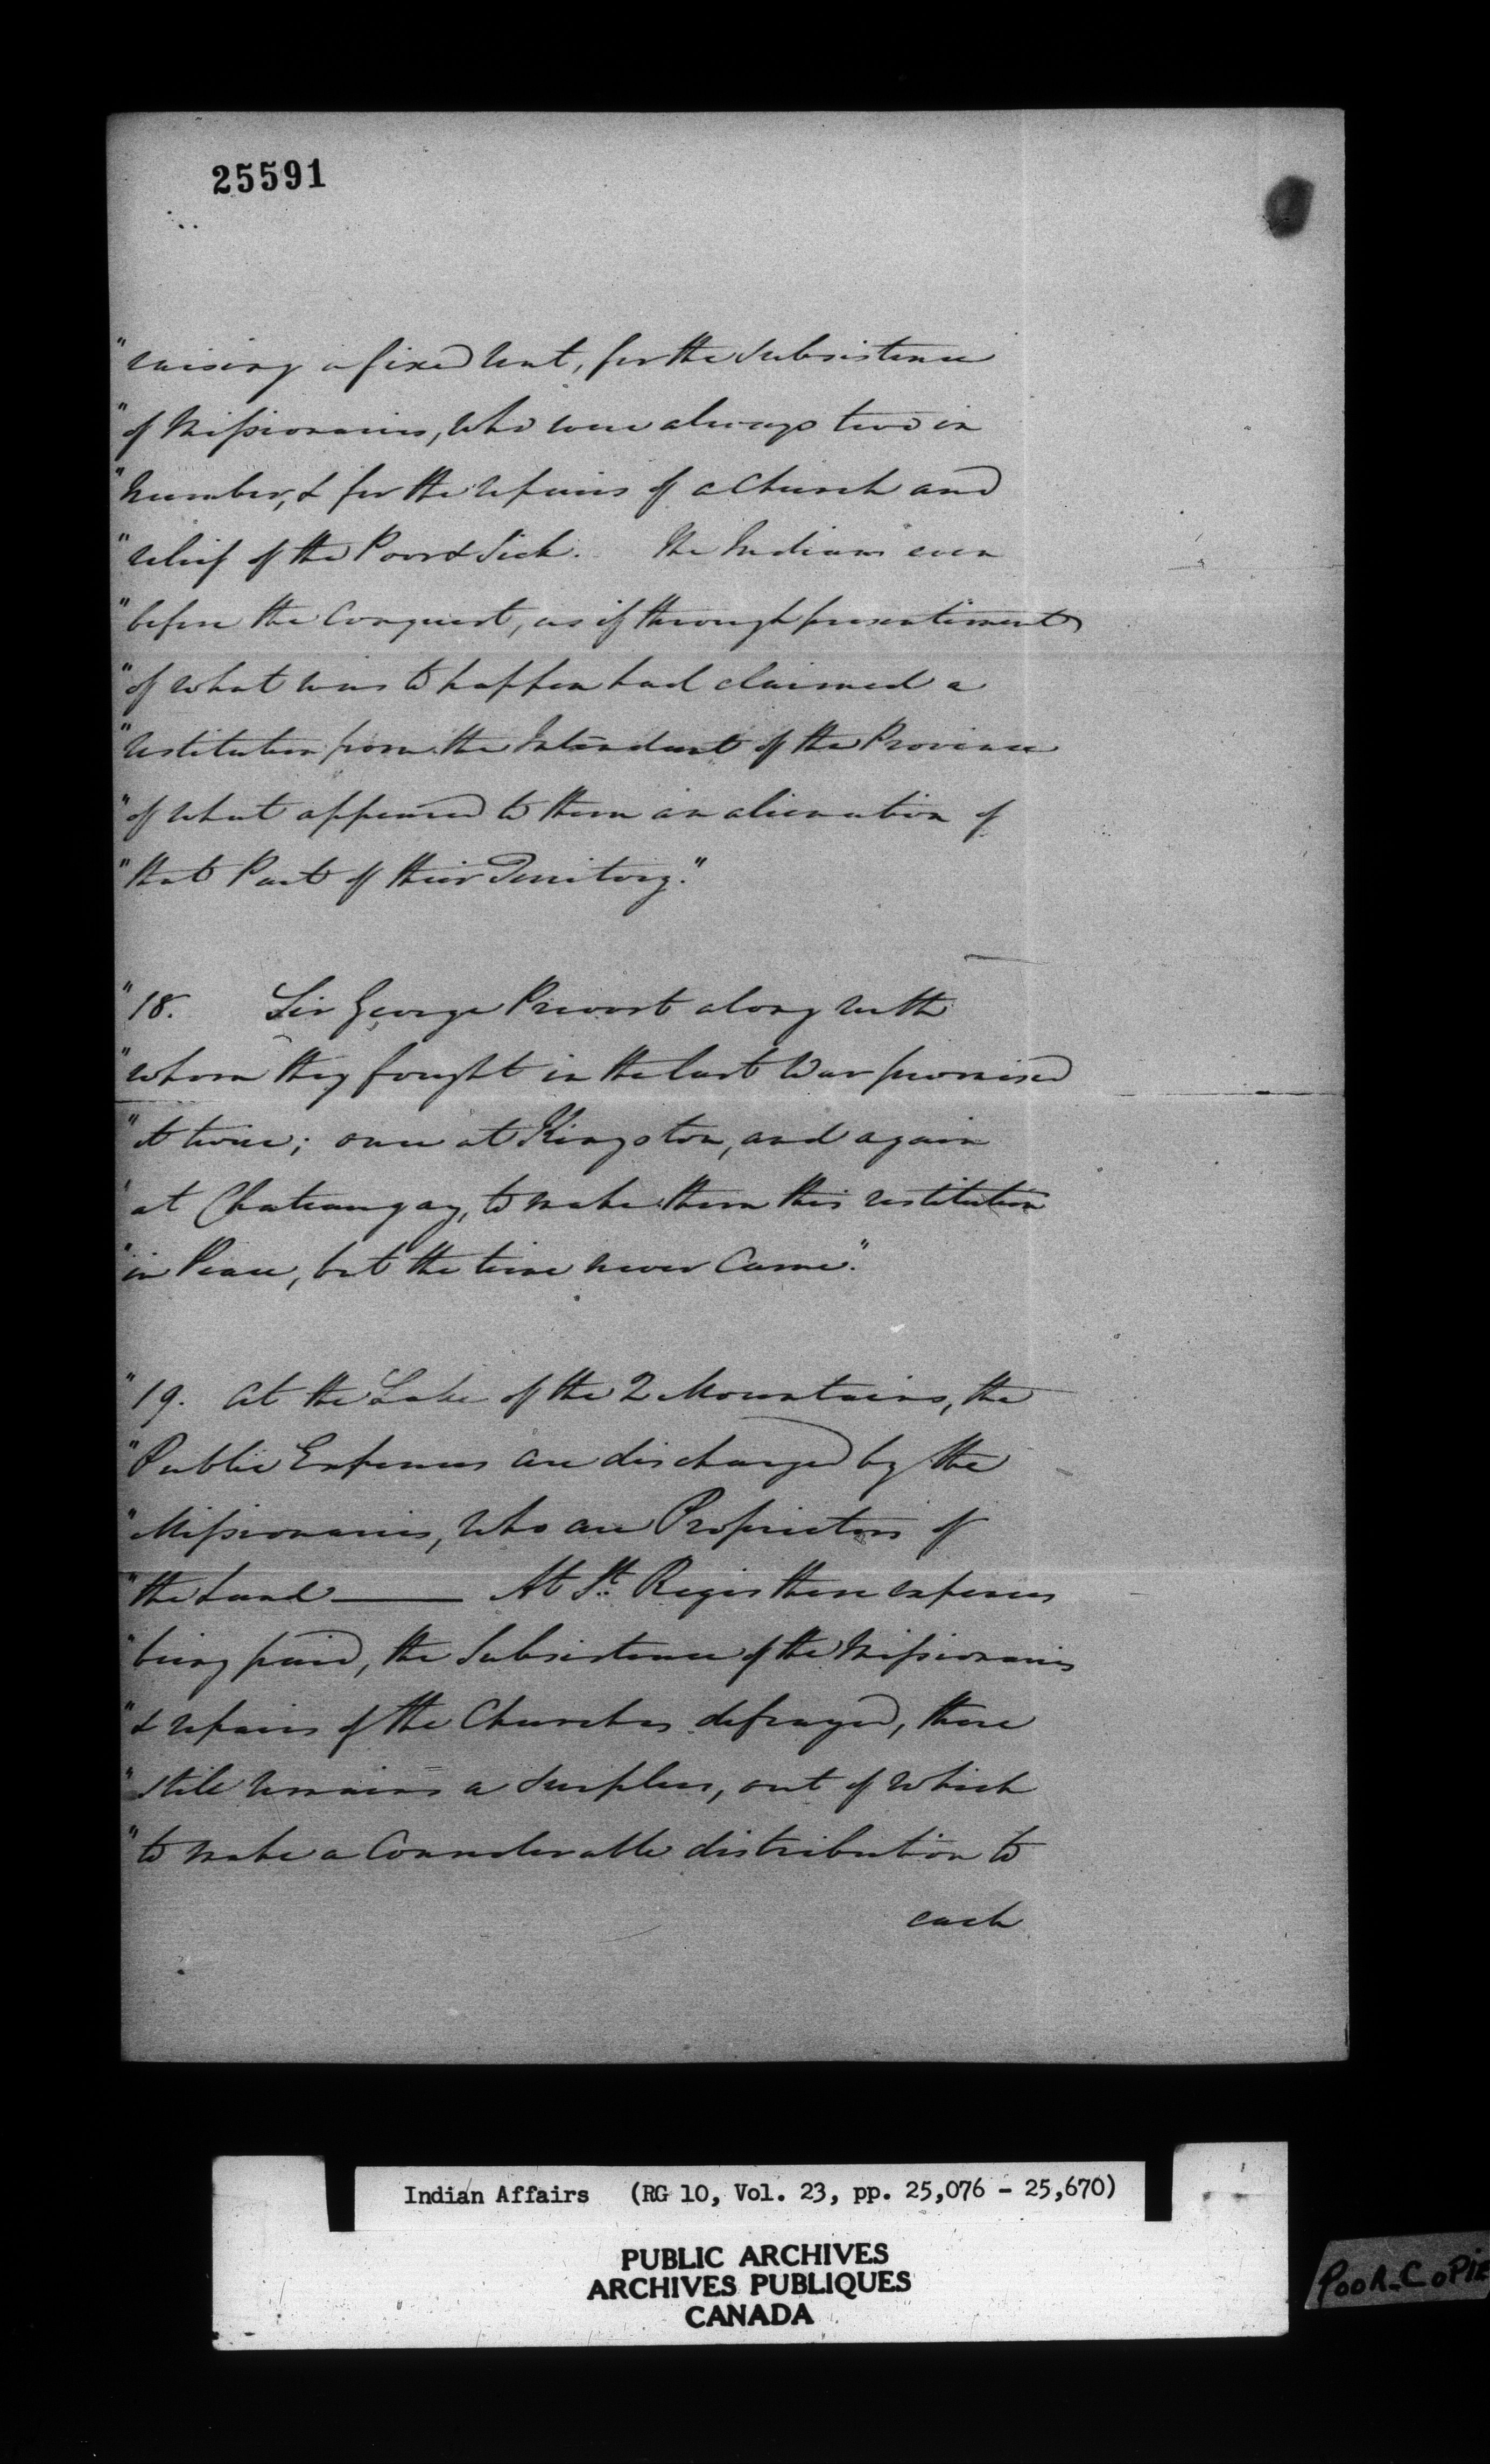 25591
"raising a fixed Rent, for the Subsistence
"of Missionaries, who were always two in
"Number, & for the repairs of a Church and
"relief of the Poor & Sick. The Indians even
"before the Conquest, as if through presentiment
"of what was to happen had claimed a
"restitution from the Intendant of the Province
"of what appeared to them an alienation of
"that Part of their Territory."
"18. Sir George Prevost along with
"whom they fought in the last War promised
"it twice; once at Kingston, and again
"at Chateaugay, to make them this restitution
"in Peace, but the time never Came."
"19. At the Lake of the 2 Mountains, the
"Public Expenses are discharged by the
"Missionaries, who are Proprietors of
"the Land —— At St. Regis these expenses
"being paid, the Subsistence of the Missionaries
"& repairs of the Churches defrayed, there
"still remains a Surplus, out of which
"to make a Considerable distribution to
each
Indian Affairs (RG 10, Vol. 23, pp. 25,076 - 25,670)
PUBLIC ARCHIVES
ARCHIVES PUBLIQUES
CANADA
POOR COPIE